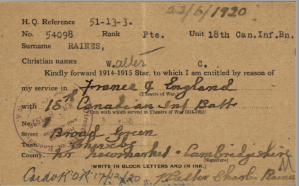 22/6/1920
H. Q. Reference 51-13-3.
No. 54098 Rank Pte. Unit 18th Can.Inf.Bn.
Surname RAINES,
Christian names Walter C.
Kindly forward 1914-1915 Star, to which I am entitled by reason of
my service in France & England
(Theatre of War)
with 15th Canadian Inf Batt
(Unit with which served in Theatre of War 1914-1915)
No.
Street Broad Green
Town Cheveley
County Nr Newmarket - Cambridgeshire
(Signature)
WRITE IN BLOCK LETTERS AND IN INK.
Walter Charles Raines